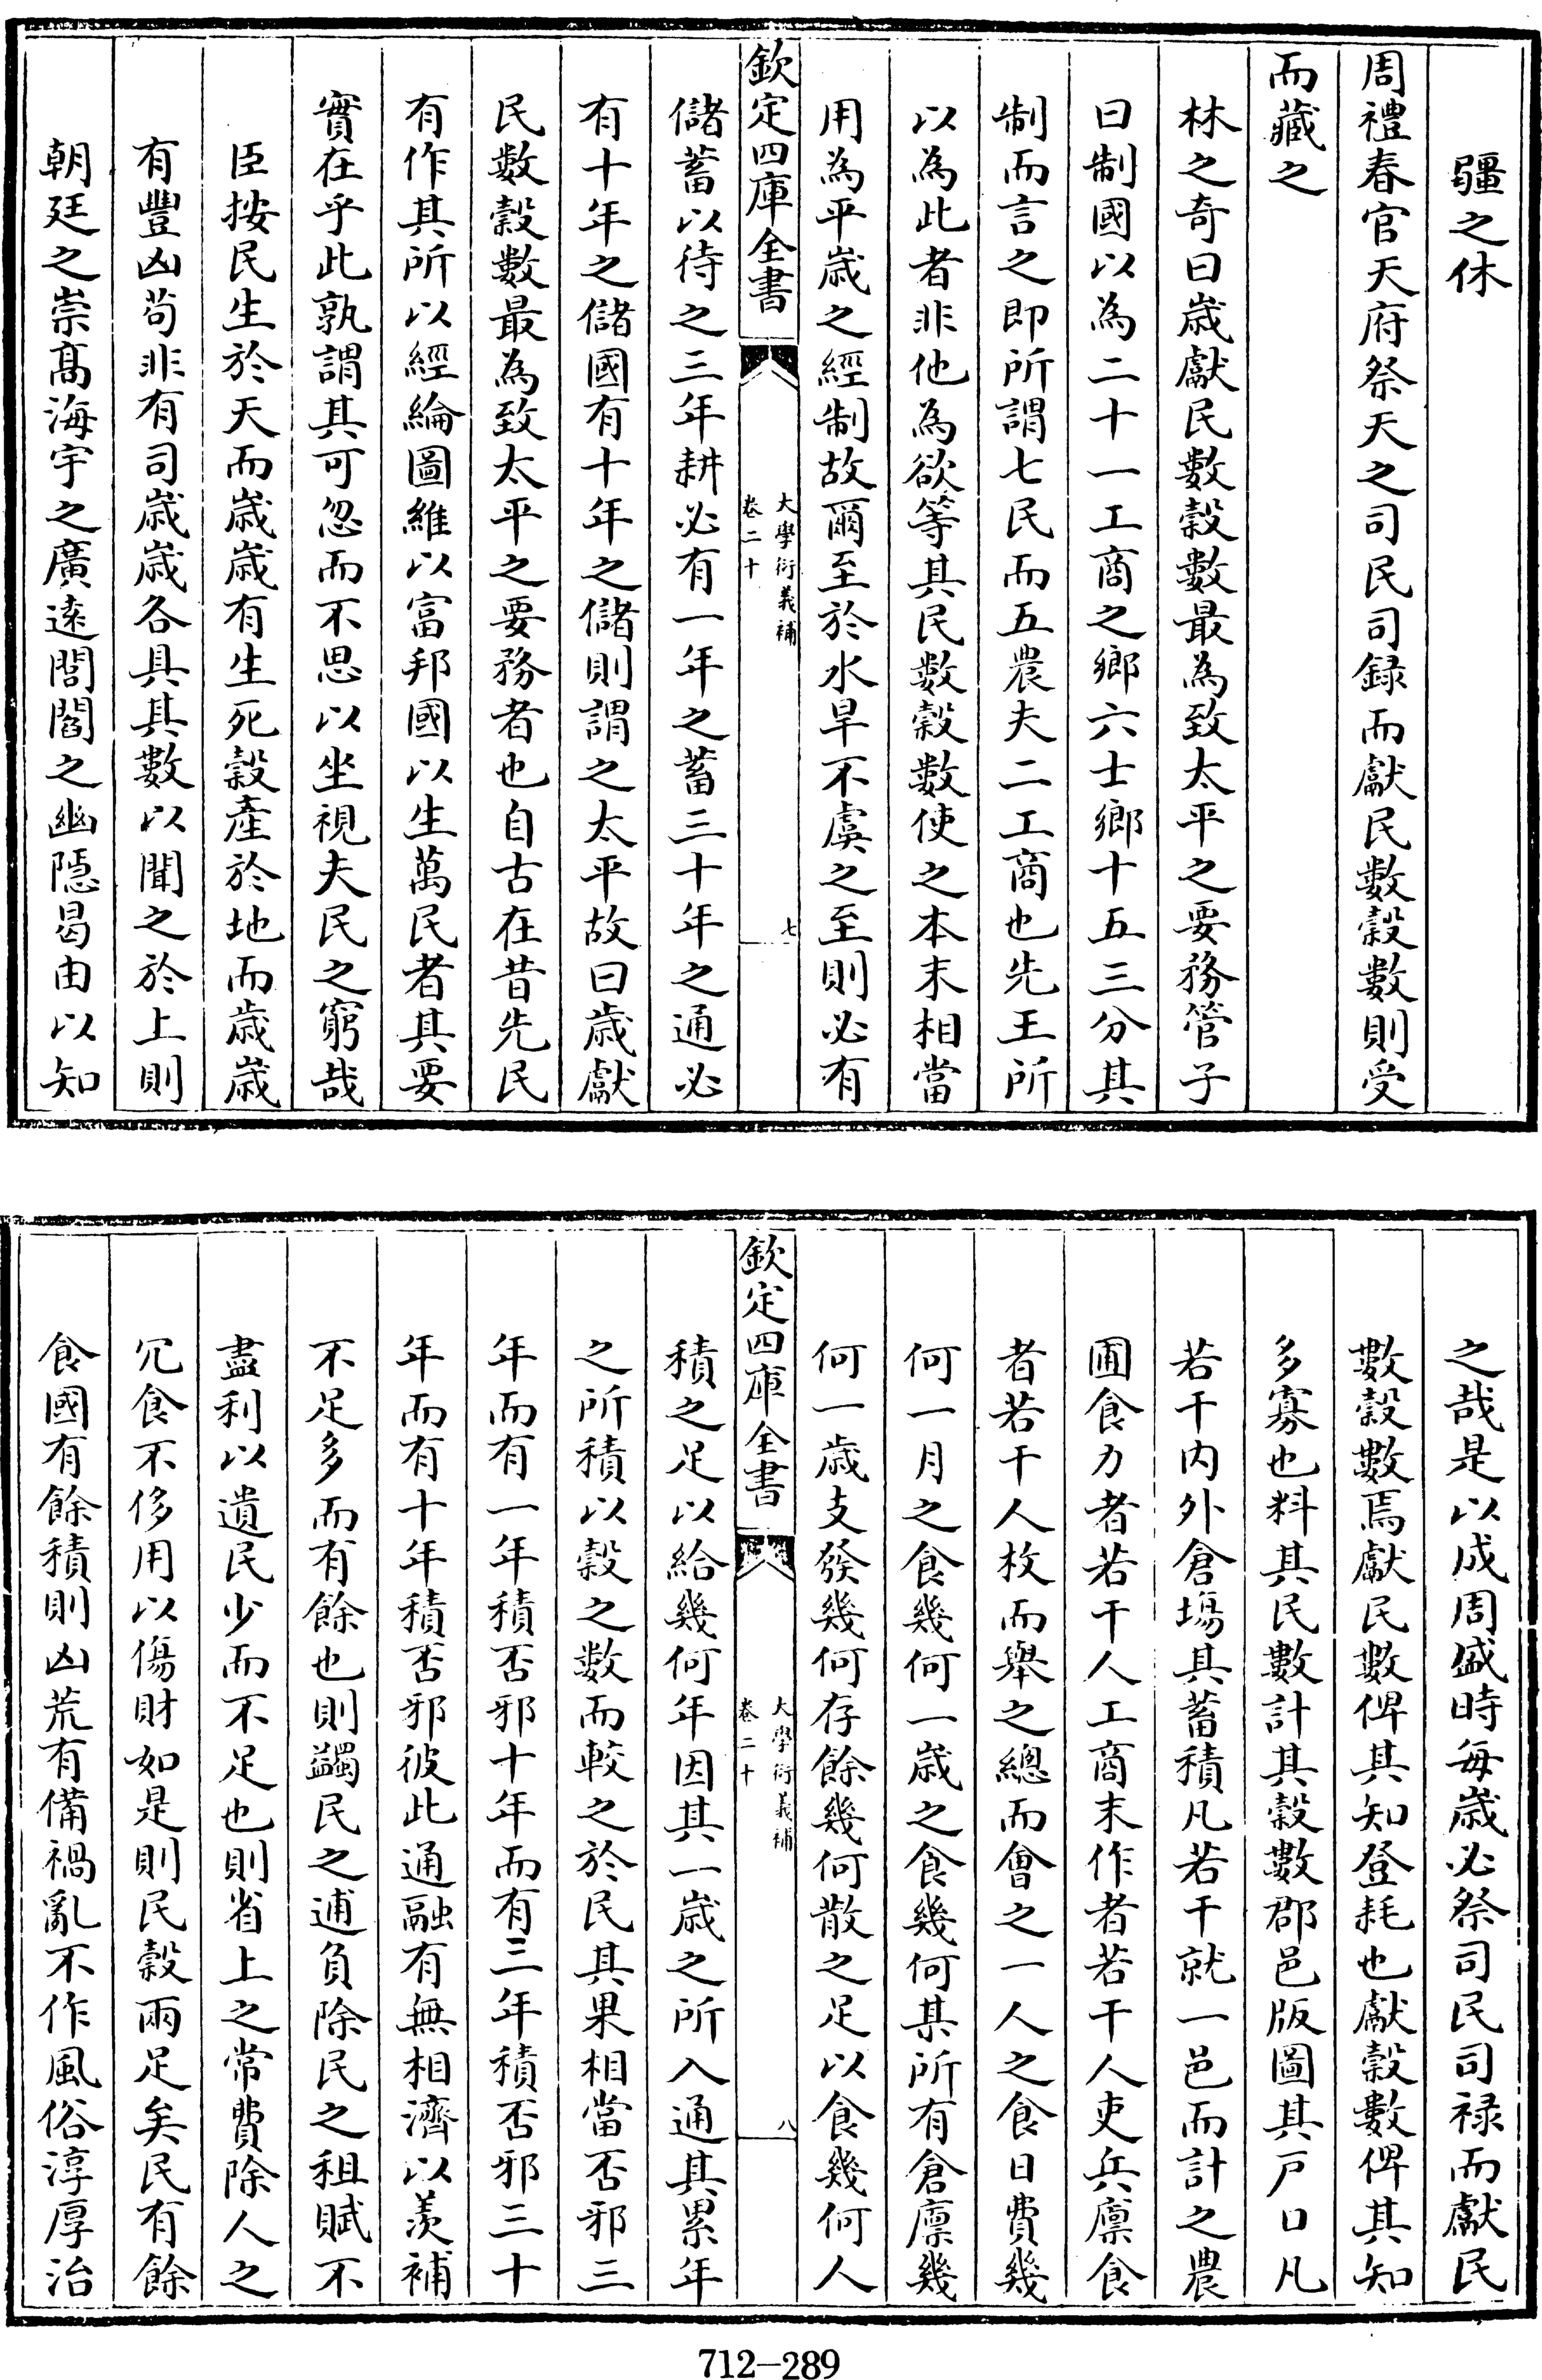 疆之休
周禮春官天府祭天之司民司録而獻民數穀數則受
而藏之
林之奇曰歳獻民數穀數最為致太平之要務管子
曰制國以為二十一工商之鄉六士鄉十五三分其
制而言之即所謂七民而五農夫二工商也先王所
以為此者非他為欲等其民數穀數使之本末相當
用為平歳之經制故爾至於水旱不虞之至則必有
欽定四庫全書
大學衍義補
卷二十
七
儲蓄以待之三年耕必有一年之蓄三十年之通必
有十年之儲國有十年之儲則謂之太平故曰歳獻
民數穀數最為致太平之要務者也自古在昔先民
有作其所以經綸圖維以富邦國以生萬民者其要
實在乎此孰謂其可忽而不思以坐視夫民之窮哉
臣按民生於天而歳歳有生死穀產於地而歳歳
有豐凶苟非有司歳歳各具其數以聞之於上則
朝廷之崇髙海宇之廣逺閭閻之幽隱曷由以知
之哉是以成周盛時每歳必祭司民司禄而獻民
數穀數焉獻民數俾其知登耗也獻穀數俾其知
多寡也料其民數計其穀數郡邑版圖其戸口凡
若干内外倉場其蓄積凡若干就一邑而計之農
圃食力者若干人工商末作者若干人吏兵廪食
者若干人枚而舉之總而會之一人之食日費幾
何一月之食幾何一歳之食幾何某所有倉廪幾
何一歳支發幾何存餘幾何散之足以食幾何人
欽定四庫全書
大學衍義補
卷二十
八
積之足以給幾何年因其一歳之所入通其累年
之所積以穀之數而較之於民其果相當否邪三
年而有一年積否邪十年而有三年積否邪三十
年而有十年積否邪彼此通融有無相濟以羨補
不足多而有餘也則蠲民之逋負除民之租賦不
盡利以遺民少而不足也則省上之常費除人之
冗食不侈用以傷財如是則民穀兩足矣民有餘
食國有餘積則凶荒有備禍亂不作風俗淳厚治
712-289